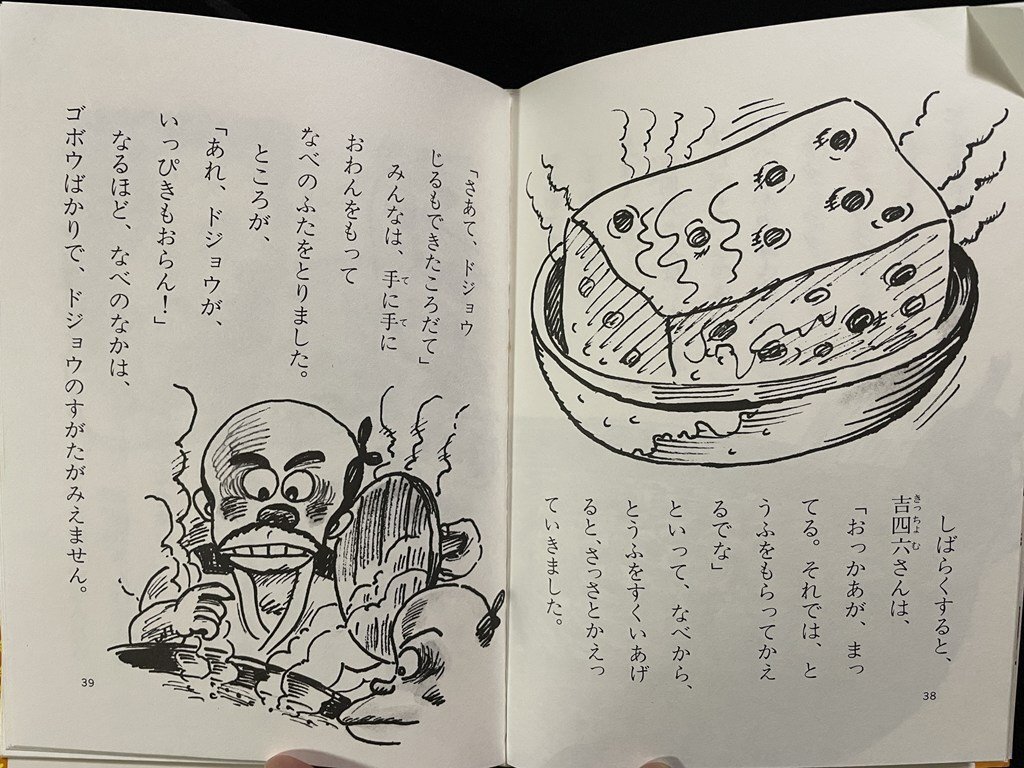 しばらくすると、
吉四六さんは、
きっちょむ
「おっかあが、まっ
てる。それでは、と
うふをもらってかえ
るでな」
といって、なべから、
とうふをすくいあげ
ると、さっさとかえっ
ていきました。
38
「さあて、ドジョウ
じるもできたころだて」
みんなは、手に手に
て
て
おわんをもって
なべのふたをとりました。
ところが、
「あれ、ドジョウが、
いっぴきもおらん!」
なるほど、なべのなかは、
ゴボウばかりで、ドジョウのすがたがみえません。
39